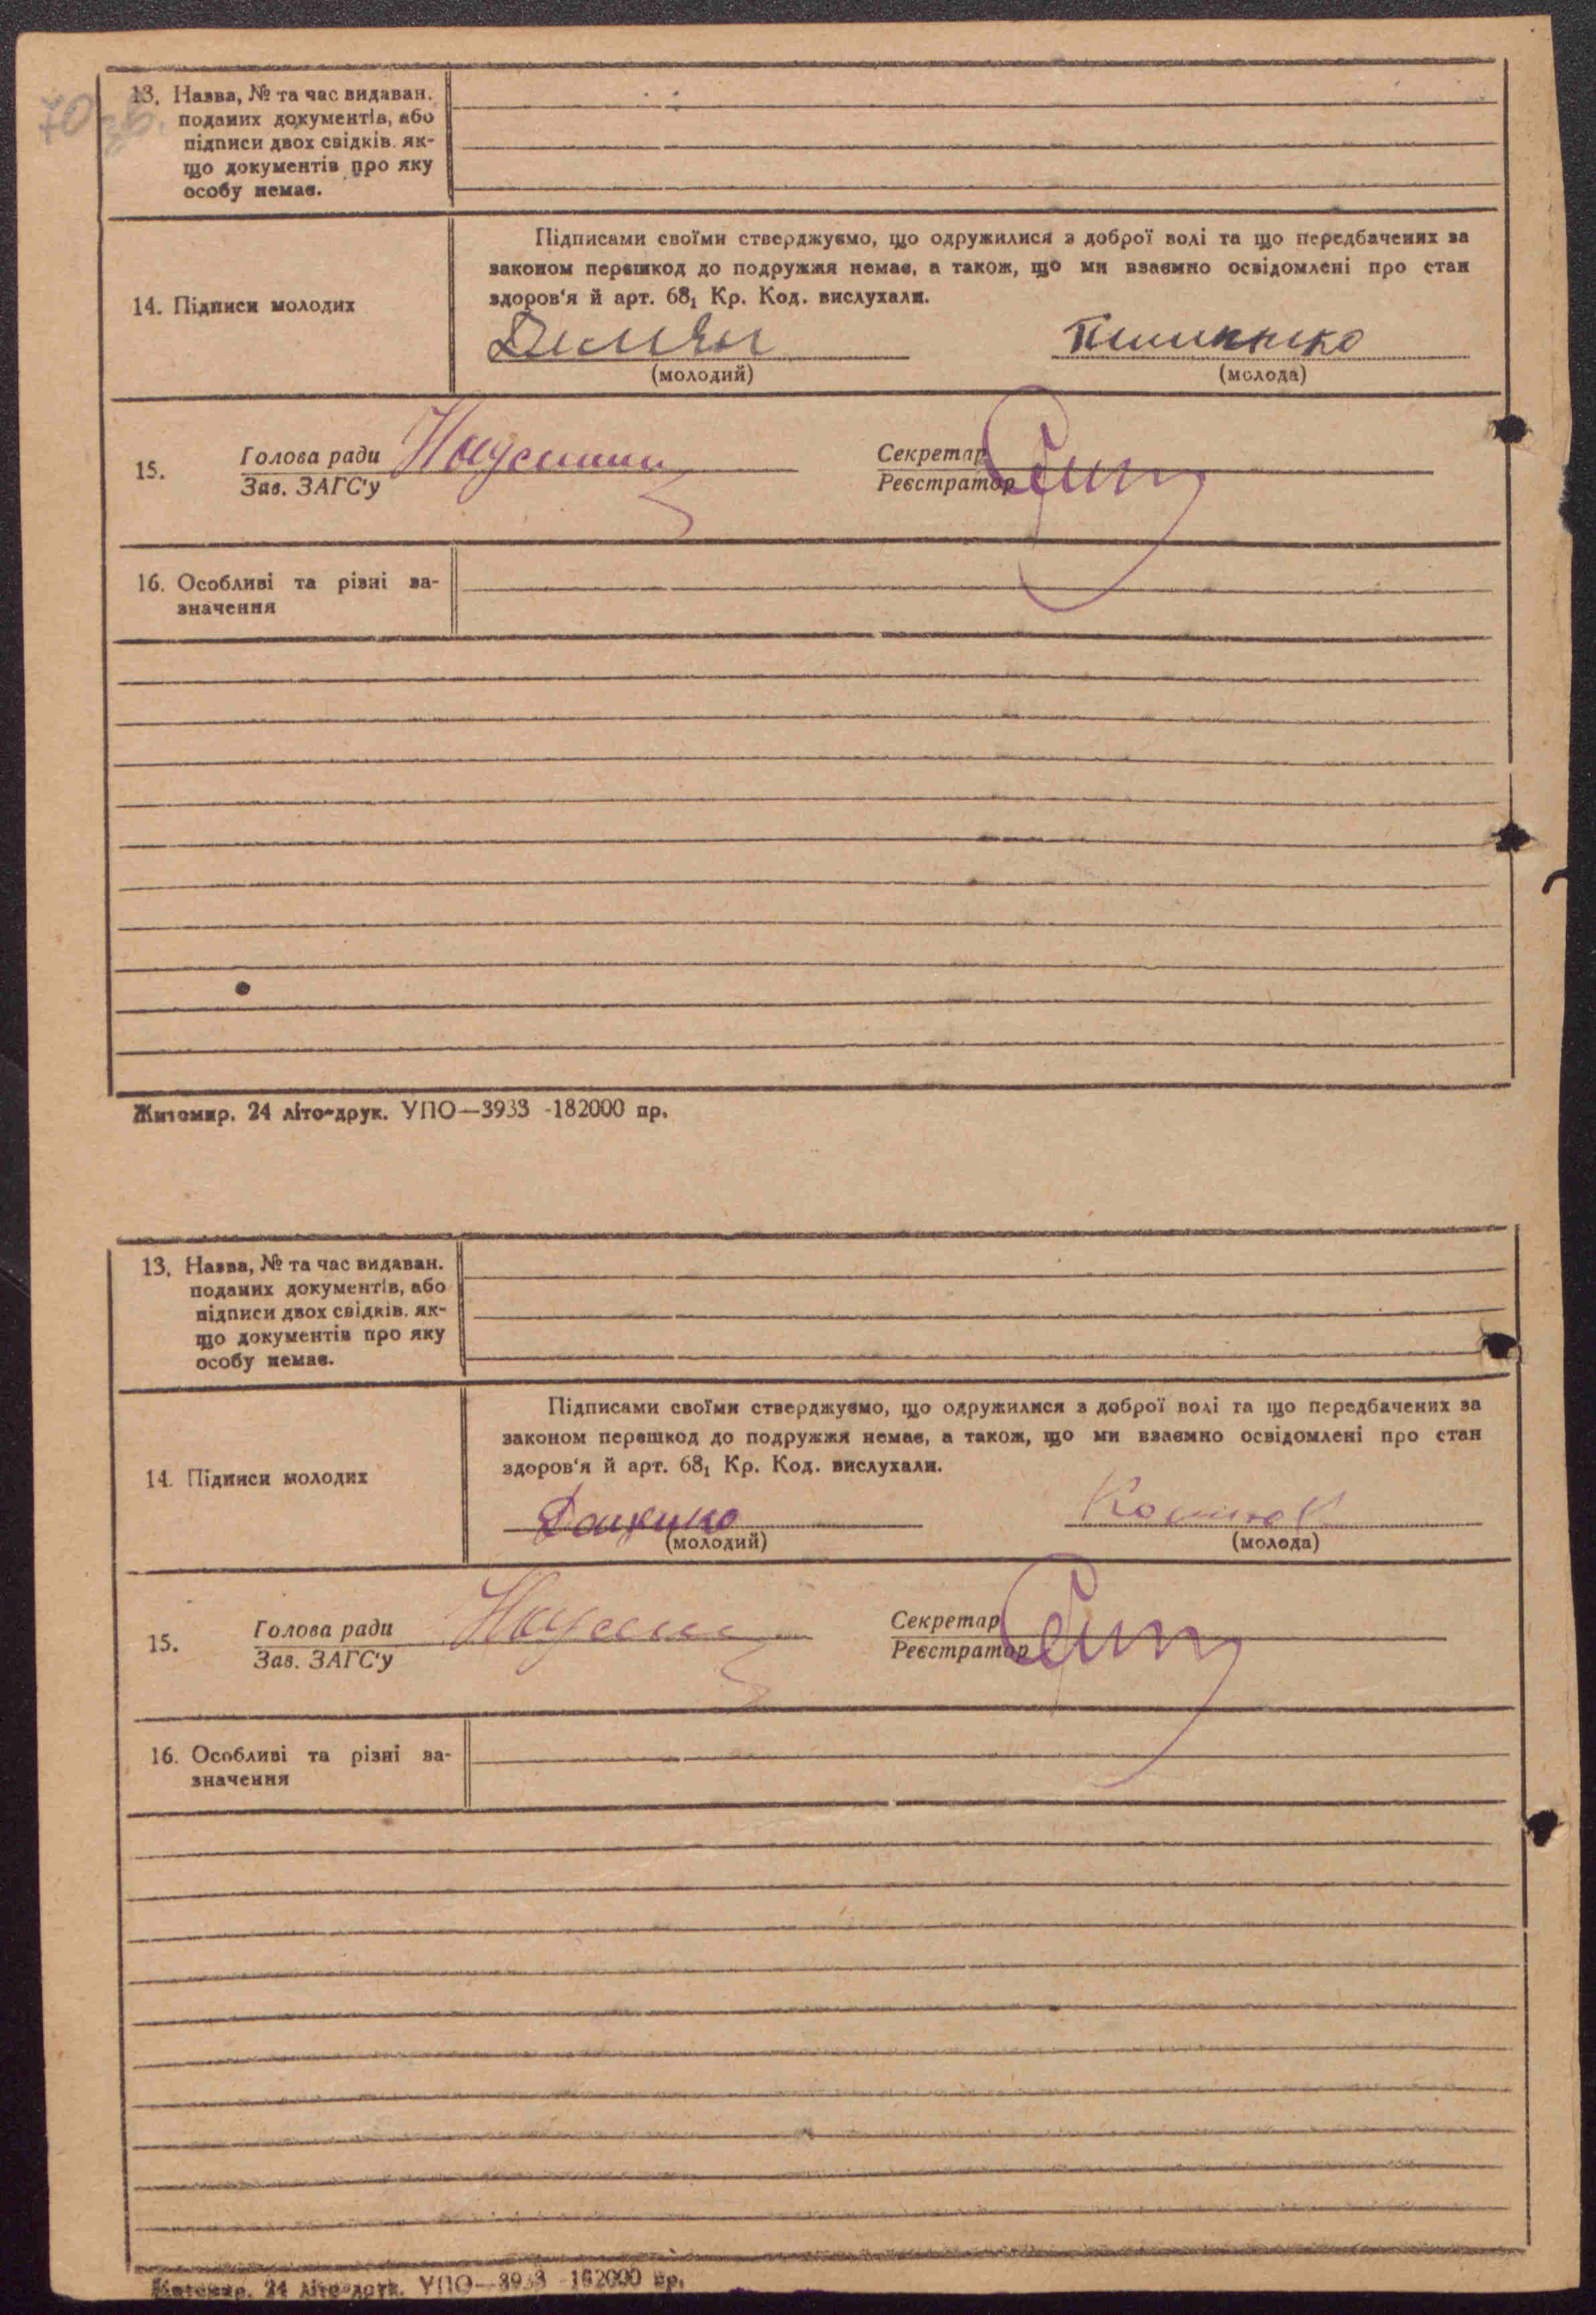 70
13. Назва, № та час видаван.
поданих документів, або
підписи двох свідків. як-
що документів про яку
особу немає.
Підписами своїми стверджуємо, що одружилися з доброї волі та що передбачених за
законом перешкод до подружжя немає, а також, що ми взаємно освідомлені про стан
здоров'я й арт. 68₁ Кр. Код. вислухали.
14. Підписи молодих
(молодий) (молода)
15. Голова ради Секретар
Зав. ЗАГС'у Реєстратор
16. Особливі та різні за-
значення
Житомир. 24 літо-друк. УПО—3933 -182000 пр.
13. Назва, № та час видаван.
поданих документів, або
підписи двох свідків. як-
що документів про яку
особу немає.
Підписами своїми стверджуємо, що одружилися з доброї волі та що передбачених за
законом перешкод до подружжя немає, а також, що ми взаємно освідомлені про стан
здоров'я й арт. 68₁ Кр. Код. вислухали.
14. Підписи молодих
(молодий) (молода)
15. Голова ради Секретар
Зав. ЗАГС'у Реєстратор
16. Особливі та різні за-
значення
Житомир. 24 літо-друк. УПО—3933 182000 пр.